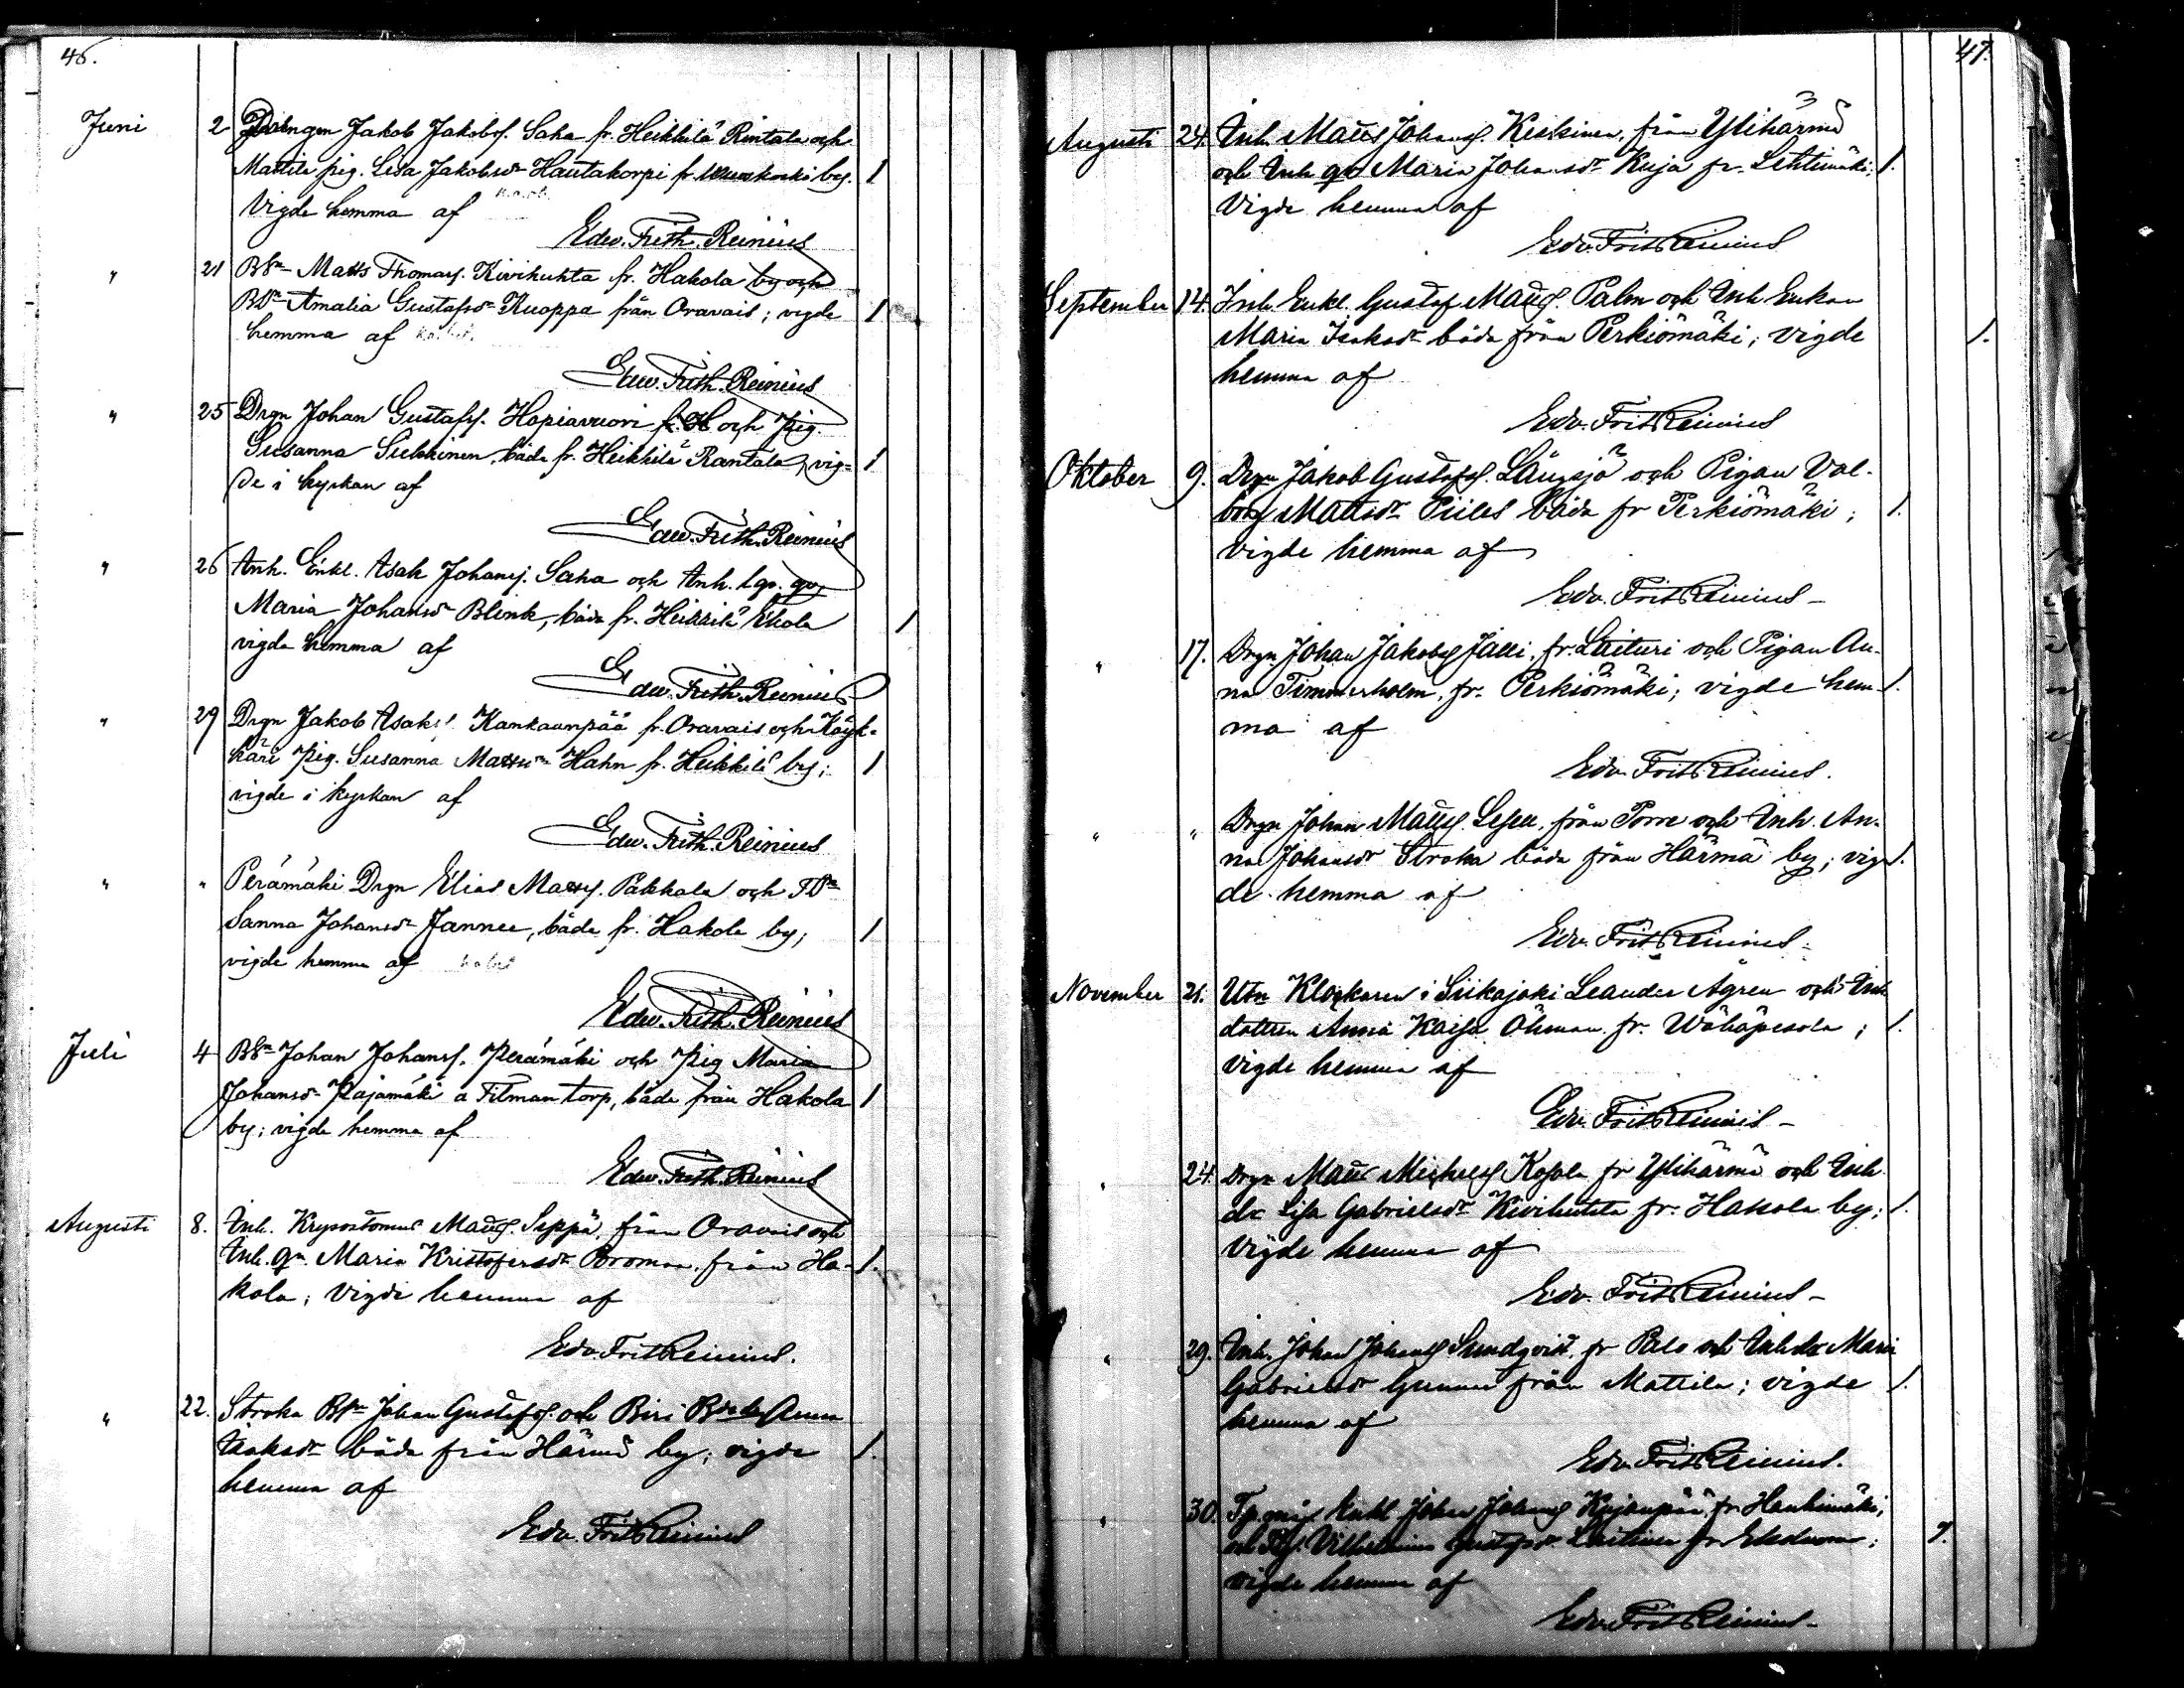 46.
Juni 2 Drängen Jakob Jakobss. Saha fr. Heikkilä Rintala och
Mattila pig. Lisa Jakobsdr Hautakorpi fr. by. 1
Vigde hemma af
Edw. Frith. Reinius
" 21 BSn Matts Thomass. Kivihuhta fr. Hakola by och
BDr Amalia Gustafsdr Kuoppa från Oravais; vigde 1
hemma af
Edw. Frith. Reinius
" 25 Drgn Johan Gustafss. Hopiavuori fr. H och Pig.
Susanna Sikkinen, båda fr. Heikkilä Rantala, vig- 1
de i kyrkan af
Edw. Frith. Reinius
" 26 Inh. Enkl. Isak Johanss. Saha och Inh. qv.
Maria Johansdr Blink, båda fr. Heikkilä Ekola 1
vigde hemma af
Edw. Frith. Reinius
" 29 Drgn Jakob Isakss Kankaanpää fr. Oravais och Köyk-
käri Pig. Susanna Mattsdr Hahn fr. Heikkilä by; 1
vigde i kyrkan af
Edw. Frith. Reinius
" " Perämäki Drgn Elias Mattss. Pakkala och TDr
Sanna Johansdr Jannee, båda fr. Hakola by; 1
vigde hemma af
Edw. Frith. Reinius
Juli 4 BSn Johan Johanss. Perämäki och Pig Maria
Johansdr Rajamäki å Filman torp, båda från Hakola 1
by; vigde hemma af
Edw. Frith. Reinius
Augusti 8. Inh. Krysostomus Matts. Seppä, från Oravais och
Inh. qn. Maria Kristofersdr Broman, från Ha- 1.
kola; Vigde hemma af
Edv. Frith Reinius.
" 22. Stroka BSn Johan Gustafss. och Biri Bdr Anna
Isaksdr båda från Härmä by; vigde 1.
hemma af
Edv. Frith Reinius
47.
Augusti 24. Inh. Matts Johanss. Keskinen, från Ylihärmä
och Inh qv Maria Johansdr Kuja fr. Lehtimäki; 1.
Vigde hemma af
Edv. Frith Reinius
September 14. Inh Enkl. Gustaf Mattss. Palm och Inh. Enkan
Maria Isaksdr båda från Perkiömäki; vigde 1.
hemma af
Edv. Frith Reinius
Oktober 9. Drgn Jakob Gustafss. Långsjö och Pigan Val-
borg Mattsdr Piiles båda fr Perkiömäki; 1.
vigde hemma af
Edv. Frith Reinius –
" 17. Drgn Johan Jakobss Jälli, fr. Laituri och Pigan An-
na Timmerholm, fr. Perkiömäki; vigde hem- 1.
ma af
Edv. Frith Reinius.
" " Drgn Johan Mattss. från Porre och Inh. An-
na Johansdr Stroka båda från Härmä by; vig- 1.
de hemma af
Edv. Frith Reinius.
November 21. Utn Klockaren i Siikajoki Leander Ågren och Inh
dottren Anna Kaisa Öhman fr. Wähäpesola; 1.
vigde hemma af
Edv. Frith Reinius –
" 24. Drgn Matts Michelss Kosola fr Ylihärmä och Inh
dr Lisa Gabrielsdr Kivihuhta fr. Hakola by; 1.
vigde hemma af
Edv. Frith Reinius –
" 29. Inh. Johan Johanss Sundqvist fr Palo och Inh dr Maria
Gabrielsdr Gunnar från Mattila; vigde 1.
hemma af
Edv. Frith Reinius.
" 30. Enkl Johan Johanss Kujanpää fr Hanhimäki,
och Vilhelmina Gustafsdr Laitinen fr Ekola; 1.
vigde hemma af
Edv. Frith Reinius –